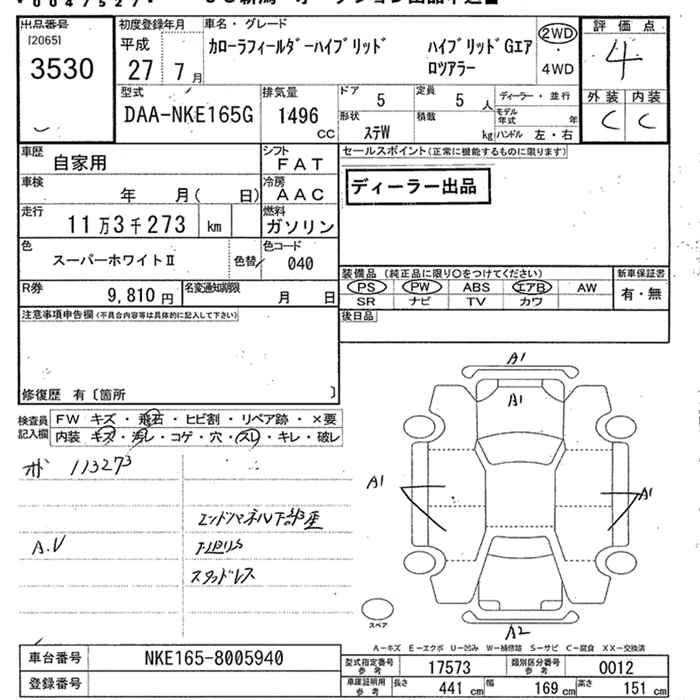 出品番号
[2065]
3530
初度登録年月
平成
27 7月
車名・グレード
カローラフィールダーハイブリッド ハイブリッドGエア
ロツアラー
2WD
4WD
評価点
4
外装 内装
C C
型式
DAA-NKE165G
排気量
1496
CC
ドア 5
定員 5 人
ディーラー・並行
形状 ステW
積載 kg
モデル年式 年
ハンドル 左・右
車歴 自家用
シフト FAT
セールスポイント(正常に機能するものに限ります)
ディーラー出品
車検 年 月( 日)
冷房 AAC
走行 11万3千273 km
燃料 ガソリン
色 スーパーホワイトⅡ
色替
色コード 040
装備品 (純正品に限り○をつけてください)
新車保証書
PS PW ABS エアB AW
SR ナビ TV カワ
有・無
R券 9,810円
名変通知期限 月 日
後日品
注意事項申告欄(不具合内容等は具体的に記入して下さい)
修復歴 有〔箇所 〕
検査員記入欄
FW キズ・飛石・ヒビ割・リペア跡・×要
内装 キズ・汚レ・コゲ・穴・スレ・キレ・破レ
113273
A.V
スタッドレス
A1
A1
A1
A1
A2
スペア
A-キズ E-エクボ U-凹み W-補修跡 S-サビ C-腐食 XX-交換済
車台番号 NKE165-8005940
登録番号
型式指定番号参考 17573
類別区分番号参考 0012
車庫証明用参考 長さ 441 cm 幅 169 cm 高さ 151 cm